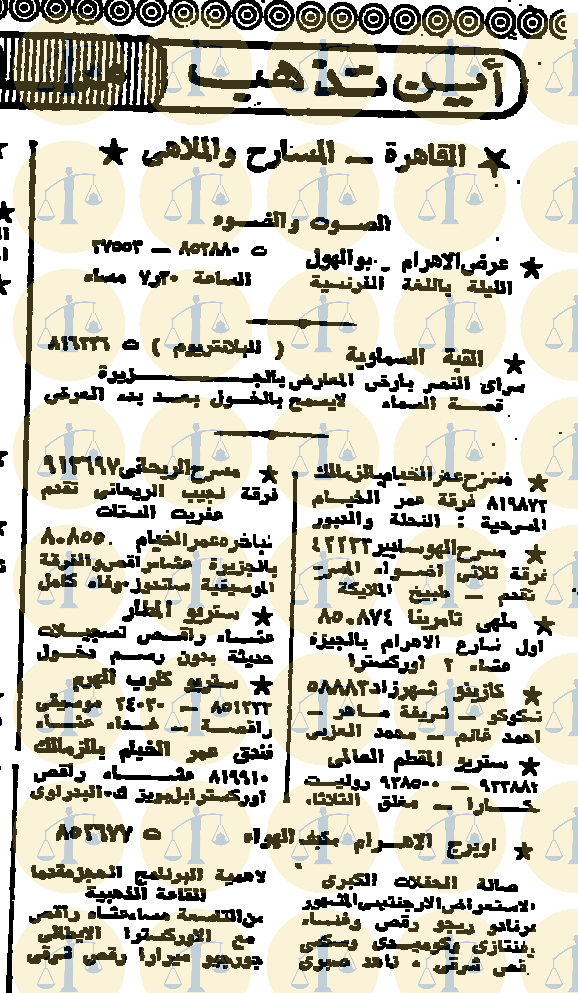 أين تذهب
القاهرة — المسارح والملاهى
الصوت والضوء
عرض الاهرام وبوالهول ت ٨٥٢٨٨٠ — ٢٧٥٥٣
الليلة باللغة الفرنسية الساعة ٧٫٣٠ مساء
القبة السماوية ( البلانتريوم ) ت ٨١٦٢٣٦
سراى النصر بأرض المعارض بالجزيرة
قصة السماء لايسمح بالدخول بعد بدء العرض
مسرح عمر الخيام بالزمالك
٨١٩٨٧٢ فرقة عمر الخيام
المسرحية : النحلة والدبور
مسرح الهوسابير ٤٢٢٢٣
فرقة ثلاثى اضواء المسرح
تقدم — طبيخ الملايكة
ملهى تامرينا ٨٥٠٨٧٤
اول شارع الاهرام بالجيزة
عشاء ٢ اوركسترا
كازينو شهرزاد ٥٨٨٨٣
شكوكو — شريفة ماهر —
احمد غانم — محمد العزبى
ستريو المقطم العالى
٩٢٣٨٨٢ — ٩٣٨٥٠٠ روليت
— مغلق الثلاثاء
مسرح الريحانى ٩١٣٦٩٧
فرقة نجيب الريحانى تقدم
عفريت الستات
باخرة عمر الخيام ٨٠٨٥٥٠
بالجزيرة عشاء راقص والفرقة
الموسيقية ساندوز وفاء كامل
ستريو المطار
عشاء راقص تسجيلات
حديثة بدون رسم دخول
ستريو كلوب الهرم
٨٥١٢٣٢ — ٢٤٠٢٠ موسيقى
راقصة — غداء عشاء
فندق عمر الخيام بالزمالك
٨١٩٩١٠ عشاء راقص
اوركسترا البدراوى
اوبرج الاهرام مكيف الهواء ت ٨٥٢٦٧٧
صالة الحفلات الكبرى
الاستعراض الارجنتينى المشهور
برنادو ريجو رقص وغناء
فنتازى وكوميدى وسكس
رقص شرقى ٠ ناهد صبرى
لاهمية البرنامج المحجز مقدما
القاعة الذهبية
من التاسعة مساء عشاء راقص
مع الاوركسترا الايطالى
جورجيو ميرارا رقص شرقى